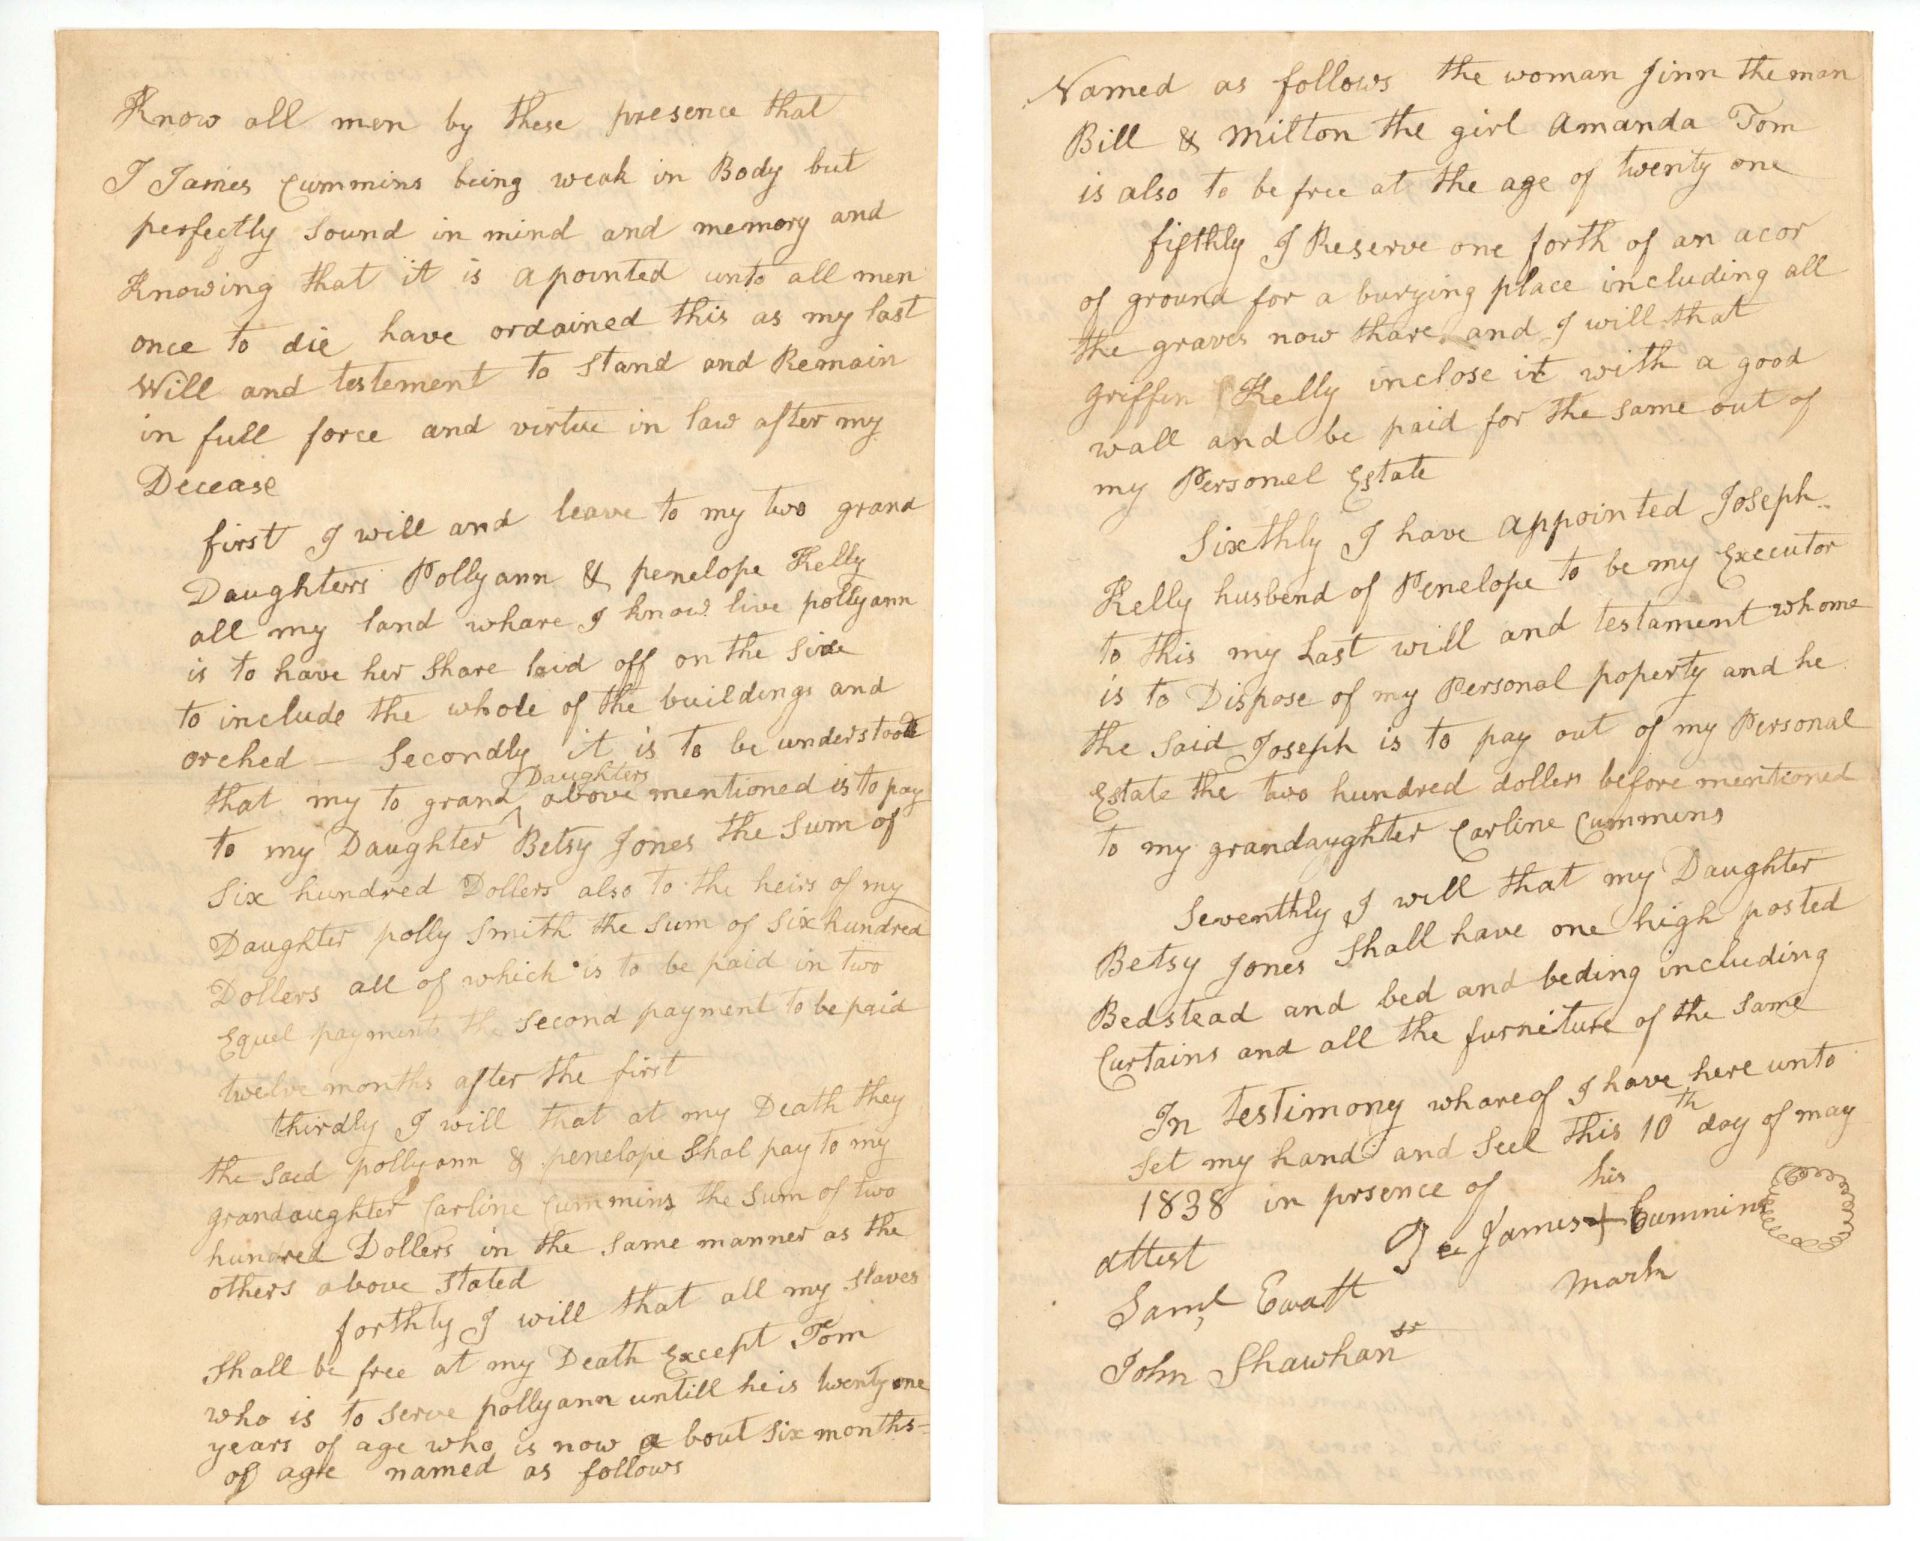 Know all men by these presence that
I James Cummins being weak in Body but
perfectly Sound in mind and memory and
Knowing that it is apointed unto all men
once to die have ordained this as my last
Will and testement to Stand and Remain
in full force and virtue in law after my
Decease
first I will and leave to my two grand
Daughters Pollyann & penelope Kelly
all my land whare I know live pollyann
is to have her Share laid off on the Side
to include the whole of the buildings and
orched — Secondly it is to be understood
Daughters
that my to grand ^ above mentioned is to pay
to my Daughter Betsy Jones the Sum of
Six hundred Dollers also to the heirs of my
Daughter polly Smith the Sum of Six hundred
Dollers all of which is to be paid in two
Equel payments the Second payment to be paid
twelve months after the first
thirdly I will that at my Death they
the Said pollyann & penelope Shal pay to my
grandaughter Carline Cummins the Sum of two
hundred Dollers in the Same manner as the
others above Stated
forthly I will that all my Slaves
Shall be free at my Death Except Tom
who is to Serve pollyann untill he is twenty one
years of age who is now about Six months
of age named as follows
Named as follows the woman Jinn the man
Bill & Milton the girl Amanda Tom
is also to be free at the age of twenty one
fifthly I Reserve one forth of an acor
of ground for a burying place including all
the graves now thare and I will that
griffin Kelly inclose it with a good
wall and be paid for the Same out of
my Personel Estate
Sixthly I have appointed Joseph
Kelly husbend of Penelope to be my Executor
to this my Last will and testament whome
is to Dispose of my Personal poperty and he
the Said Joseph is to pay out of my Personal
Estate the two hundred dollers before mentioned
to my grandaughter Carline Cummins
Seventhly I will that my Daughter
Betsy Jones Shall have one high posted
Bedstead and bed and beding including
Curtains and all the furneture of the Same
In testimony whareof I have here unto
Set my hand and Seel this 10th day of may
1838 in prsence of his
attest James + Cummins
Saml Ewatt mark
John Shawhan sr